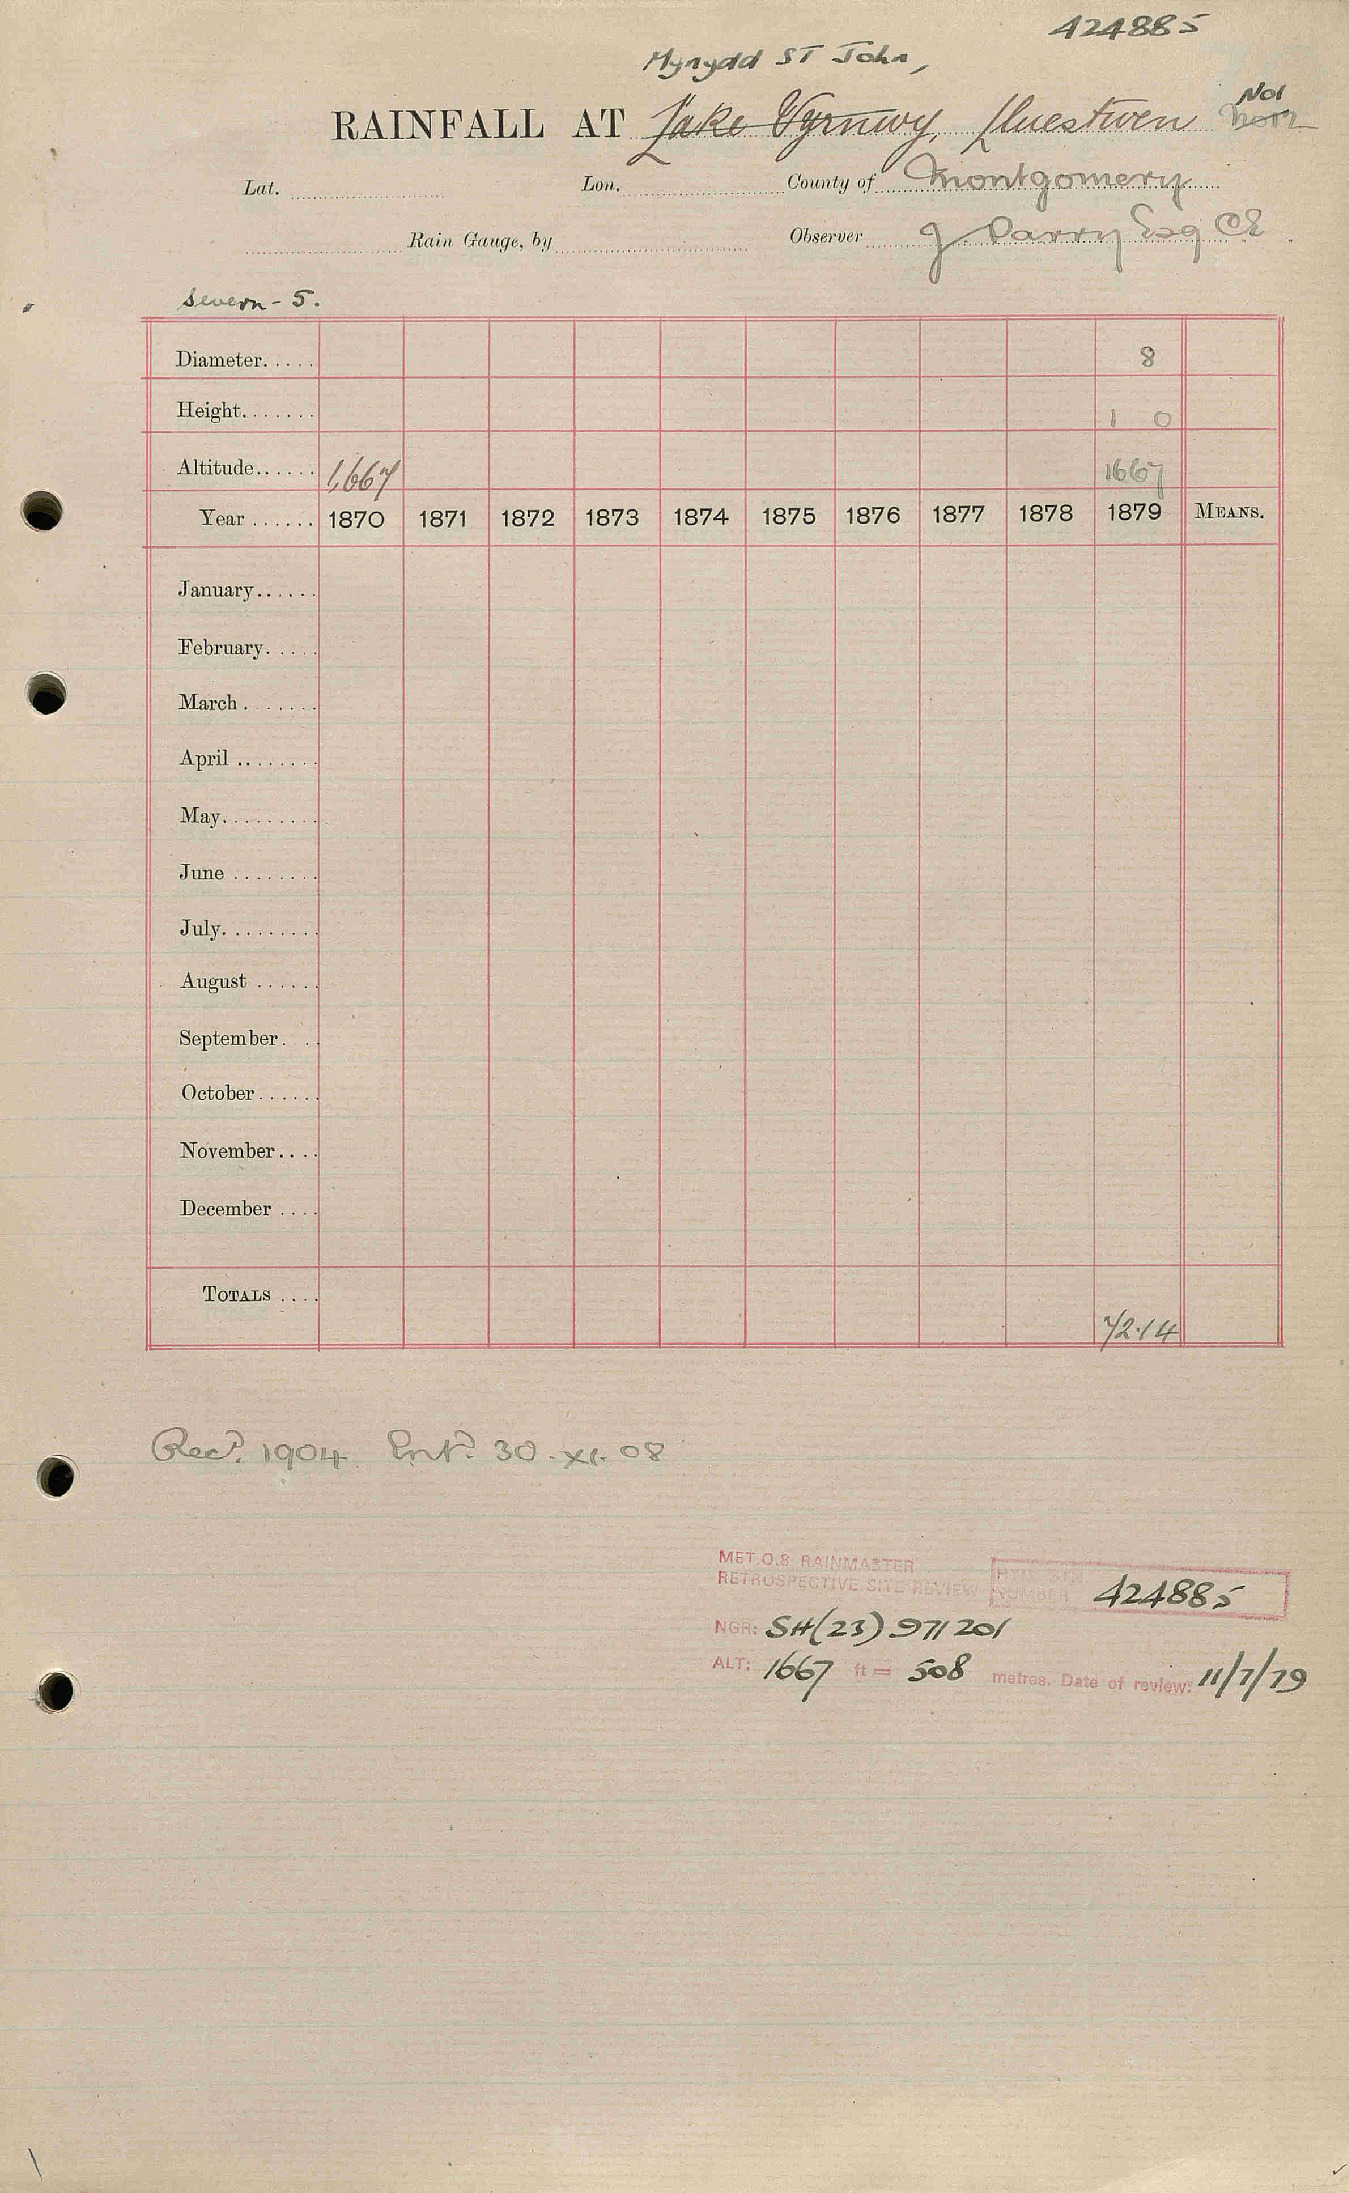 424885
Mynydd ST John,
RAINFALL AT Lake Vyrnwy, Lluestwen No1
Lat. Lon. County of Montgomery
Rain Gauge, by Observer J. Parry Esq CE
Severn - 5.
Diameter..... 8
Height....... 1 0
Altitude...... 1,667 1667
Year ...... 1870 1871 1872 1873 1874 1875 1876 1877 1878 1879 MEANS.
January......
February.....
March.......
April ........
May.........
June ........
July.........
August ......
September...
October......
November....
December ....
TOTALS .... 72.14
Recd. 1904 Entd. 30.XI.08
MET.O.8 RAINMASTER
RETROSPECTIVE SITE REVIEW HYD. SEN NUMBER 424885
NGR: SH(23) 971 201
ALT: 1667 ft = 508 metres. Date of review: 11/7/79